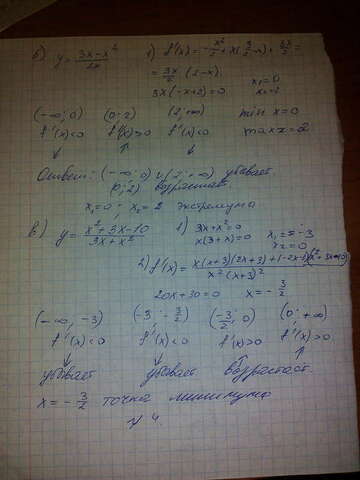 б) y = (3x-x²)/2x 1) f'(x) = -x²/2 + x(3/2-x) + 3x/2 =
= 3x/2 (2-x) x₁=0
3x(-x+2)=0 x₂=2
(-∞; 0) (0; 2) (2; +∞) min x=0
f'(x)<0 f'(x)>0 f'(x)<0 max x=2
↓ ↑ ↓
Ответ: (-∞; 0) и (2; +∞) убывает.
(0; 2) возрастает
x₁=0; x₂=2 экстремума
в) y = (x²+3x-10)/(3x+x²) 1) 3x+x²=0 x₁=-3
x(3+x)=0 x₂=0
2) f'(x) = (x(x+3)(2x+3)+(-2x-3)(x²+3x-10))/(x²(x+3)²)
20x+30=0 x = -3/2
(-∞, -3) (-3; -3/2) (-3/2; 0) (0; +∞)
f'(x)<0 f'(x)<0 f'(x)>0 f'(x)>0
↓ ↓ ↑ ↑
убывает убывает возрастает.
x = -3/2 точка минимума